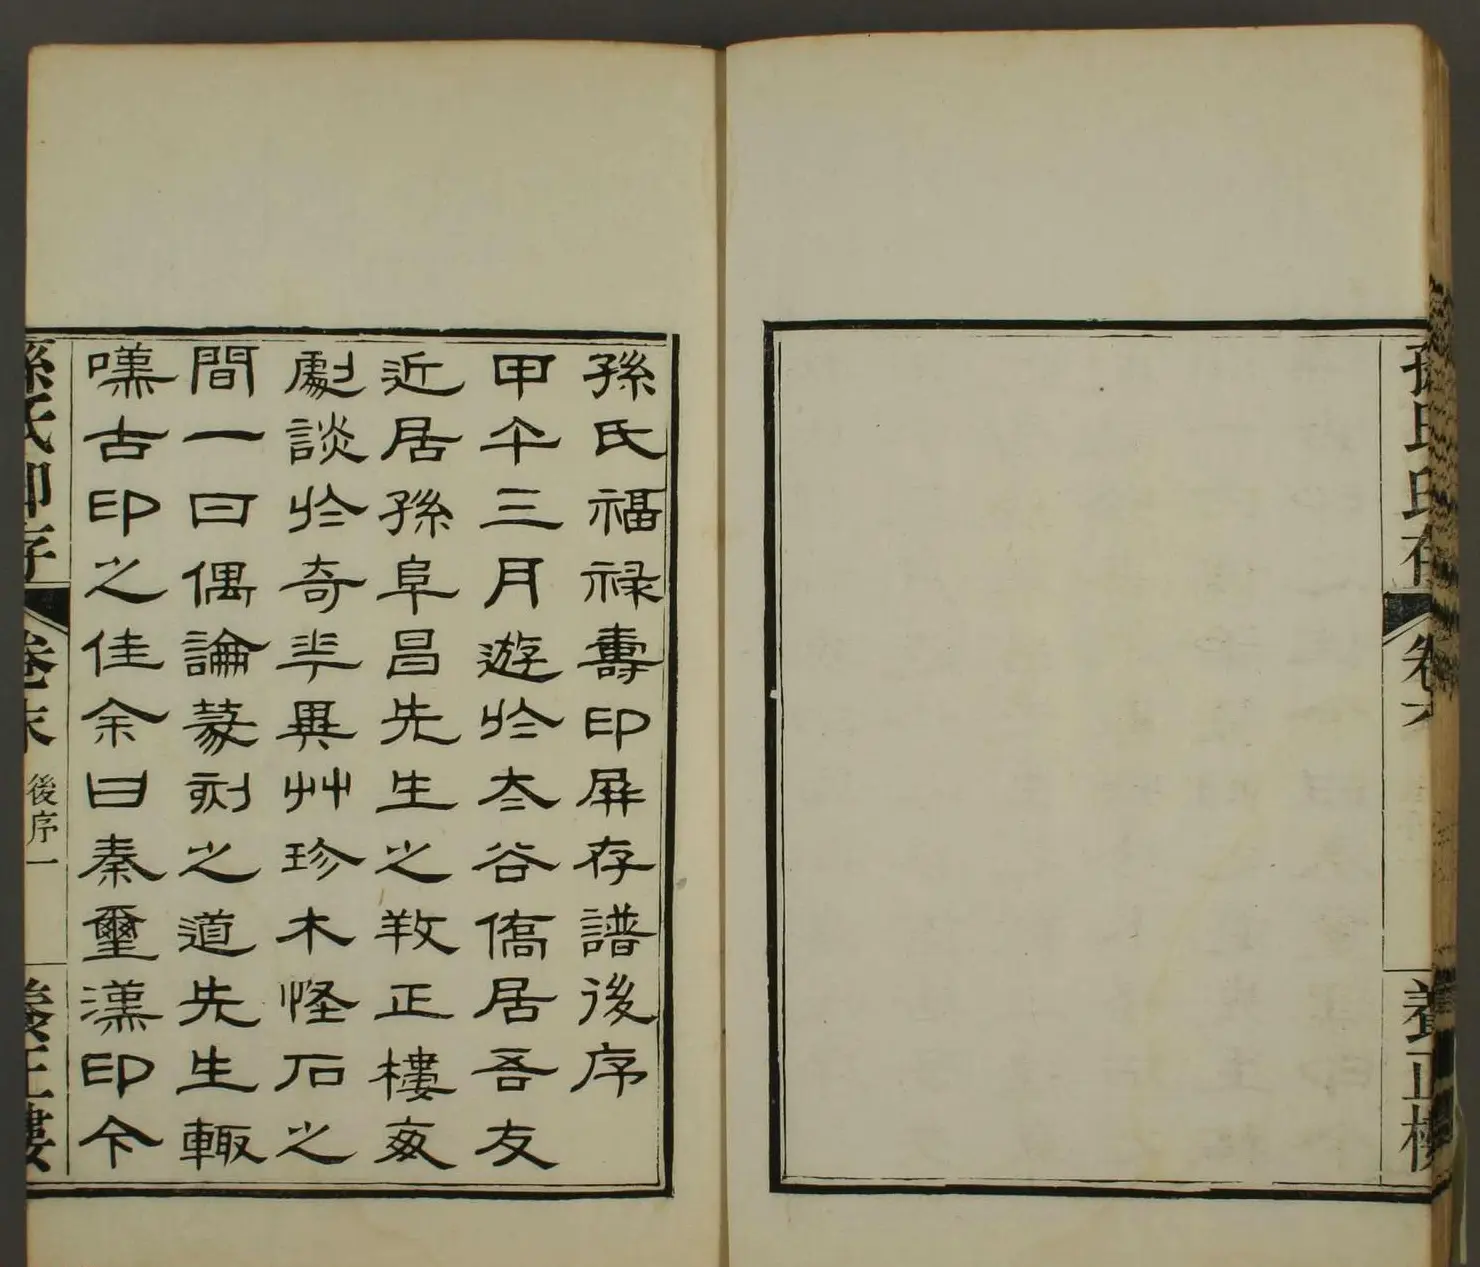 孫氏印存
卷六
養正樓
孫氏福祿壽印屏存譜後序
甲午三月遊於太谷僑居吾友
近居孫阜昌先生之𢼝正樓每
劇談於奇華異艸珍木怪石之
間一日偶論篆刻之道先生輙
嘆古印之佳余曰秦璽漢印今
孫氏印存
卷末
後序一
養正樓